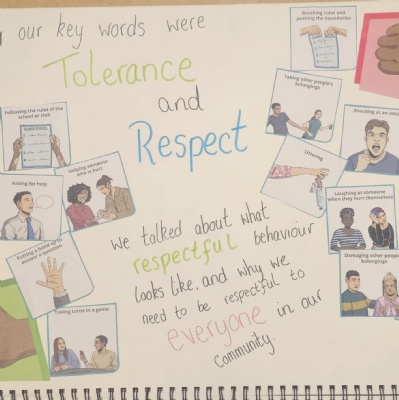 our key words were
Tolerance
and
Respect
we talked about what
respectful behaviour
looks like, and why we
need to be respectful to
everyone in our
community.
Following the rules of the
school or club
Helping someone
who is hurt
Asking for help
Putting a hand up to
answer a question
Taking turns in a game
Breaking rules and
pushing the boundaries
Taking other people's
belongings
Shouting at an adult
Littering
Laughing at someone
when they hurt themselves
Damaging other people's
belongings